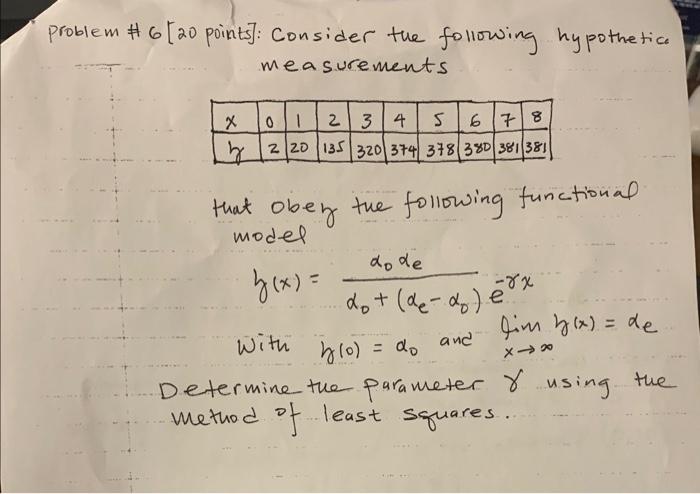 Problem # 6 [20 points]: Consider the following hypothetica
measurements
x 0 1 2 3 4 5 6 7 8
y 2 20 135 320 374 378 380 381 381
that obey the following functional
model
y(x) = α₀αe / (α₀ + (αe - α₀) e^-γx)
with y(0) = α₀ and lim x→∞ y(x) = αe
Determine the parameter γ using the
method of least squares.